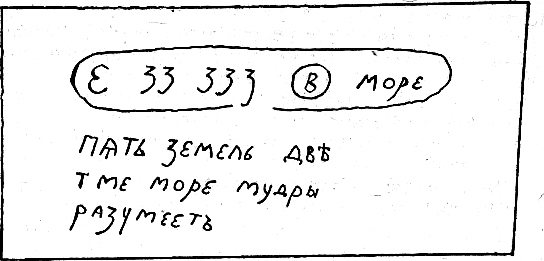 Є ЗЗ ЗЗЗ В МОРЕ
ПѦТЬ ЗЕМЕЛЬ ДВѢ
ТМЕ МОРЕ МУДРЫ
РАЗУМЕЕТЬ